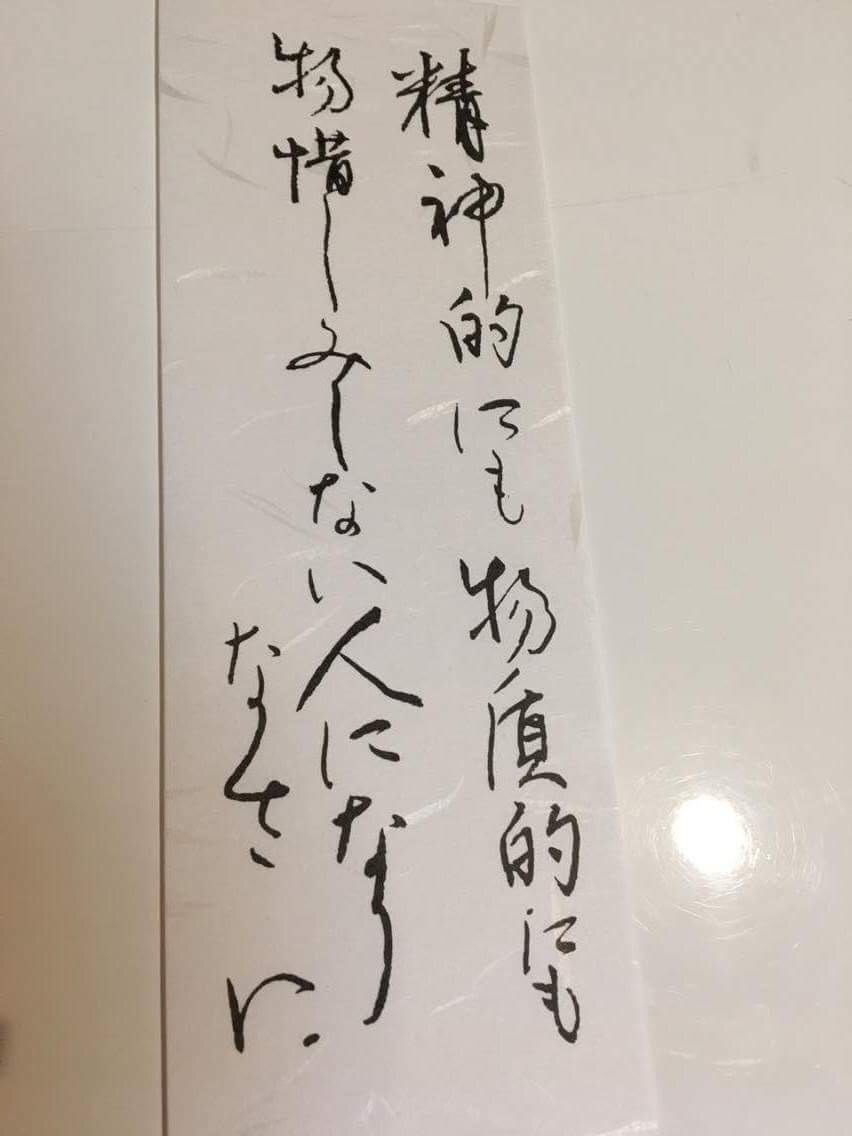 精神的にも物質的にも
物惜しみしない人になり
なさい。